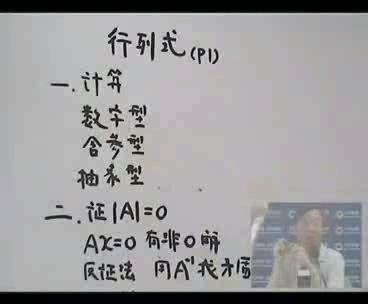 行列式(P1)
一.计算
数字型
含参型
抽象型
二.证|A|=0
AX=0 有非0解
反证法 用A⁻¹找矛盾